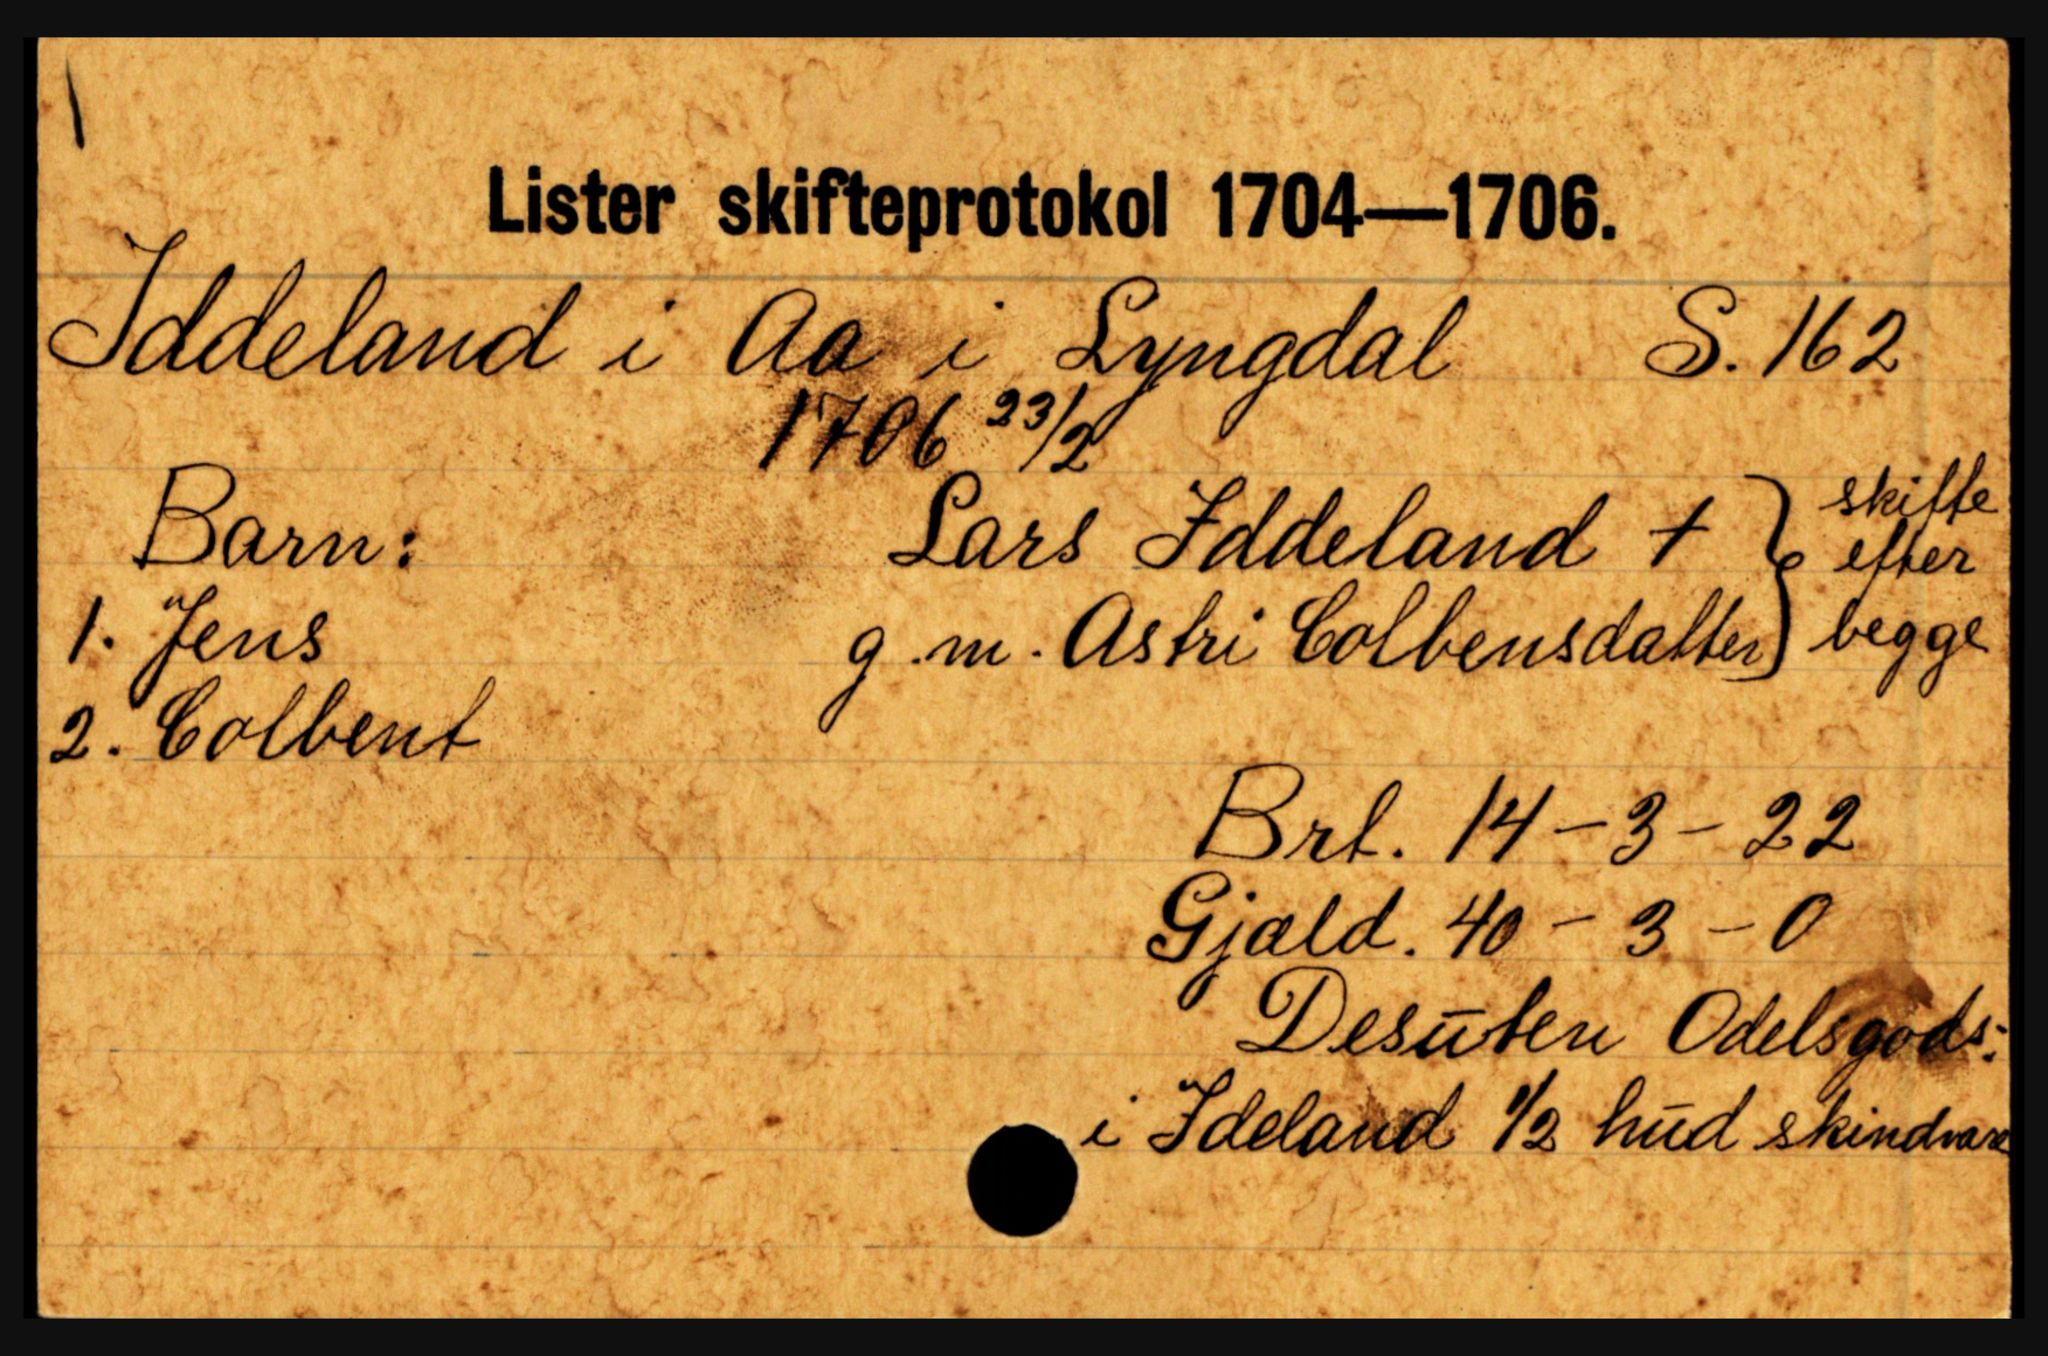 Lister skifteprotokol 1704—1706.
Iddeland i Aa i Lyngdal S. 162
1706 23/2
Barn: Lars Iddeland † } skifte efter begge
1. Jens g. m. Astri Colbensdatter
2. Colbent
Brt. 14 - 3 - 22
Gjæld. 40 - 3 - 0
Desūten Odelsgods:
i Ideland 1/2 hūd skindvare